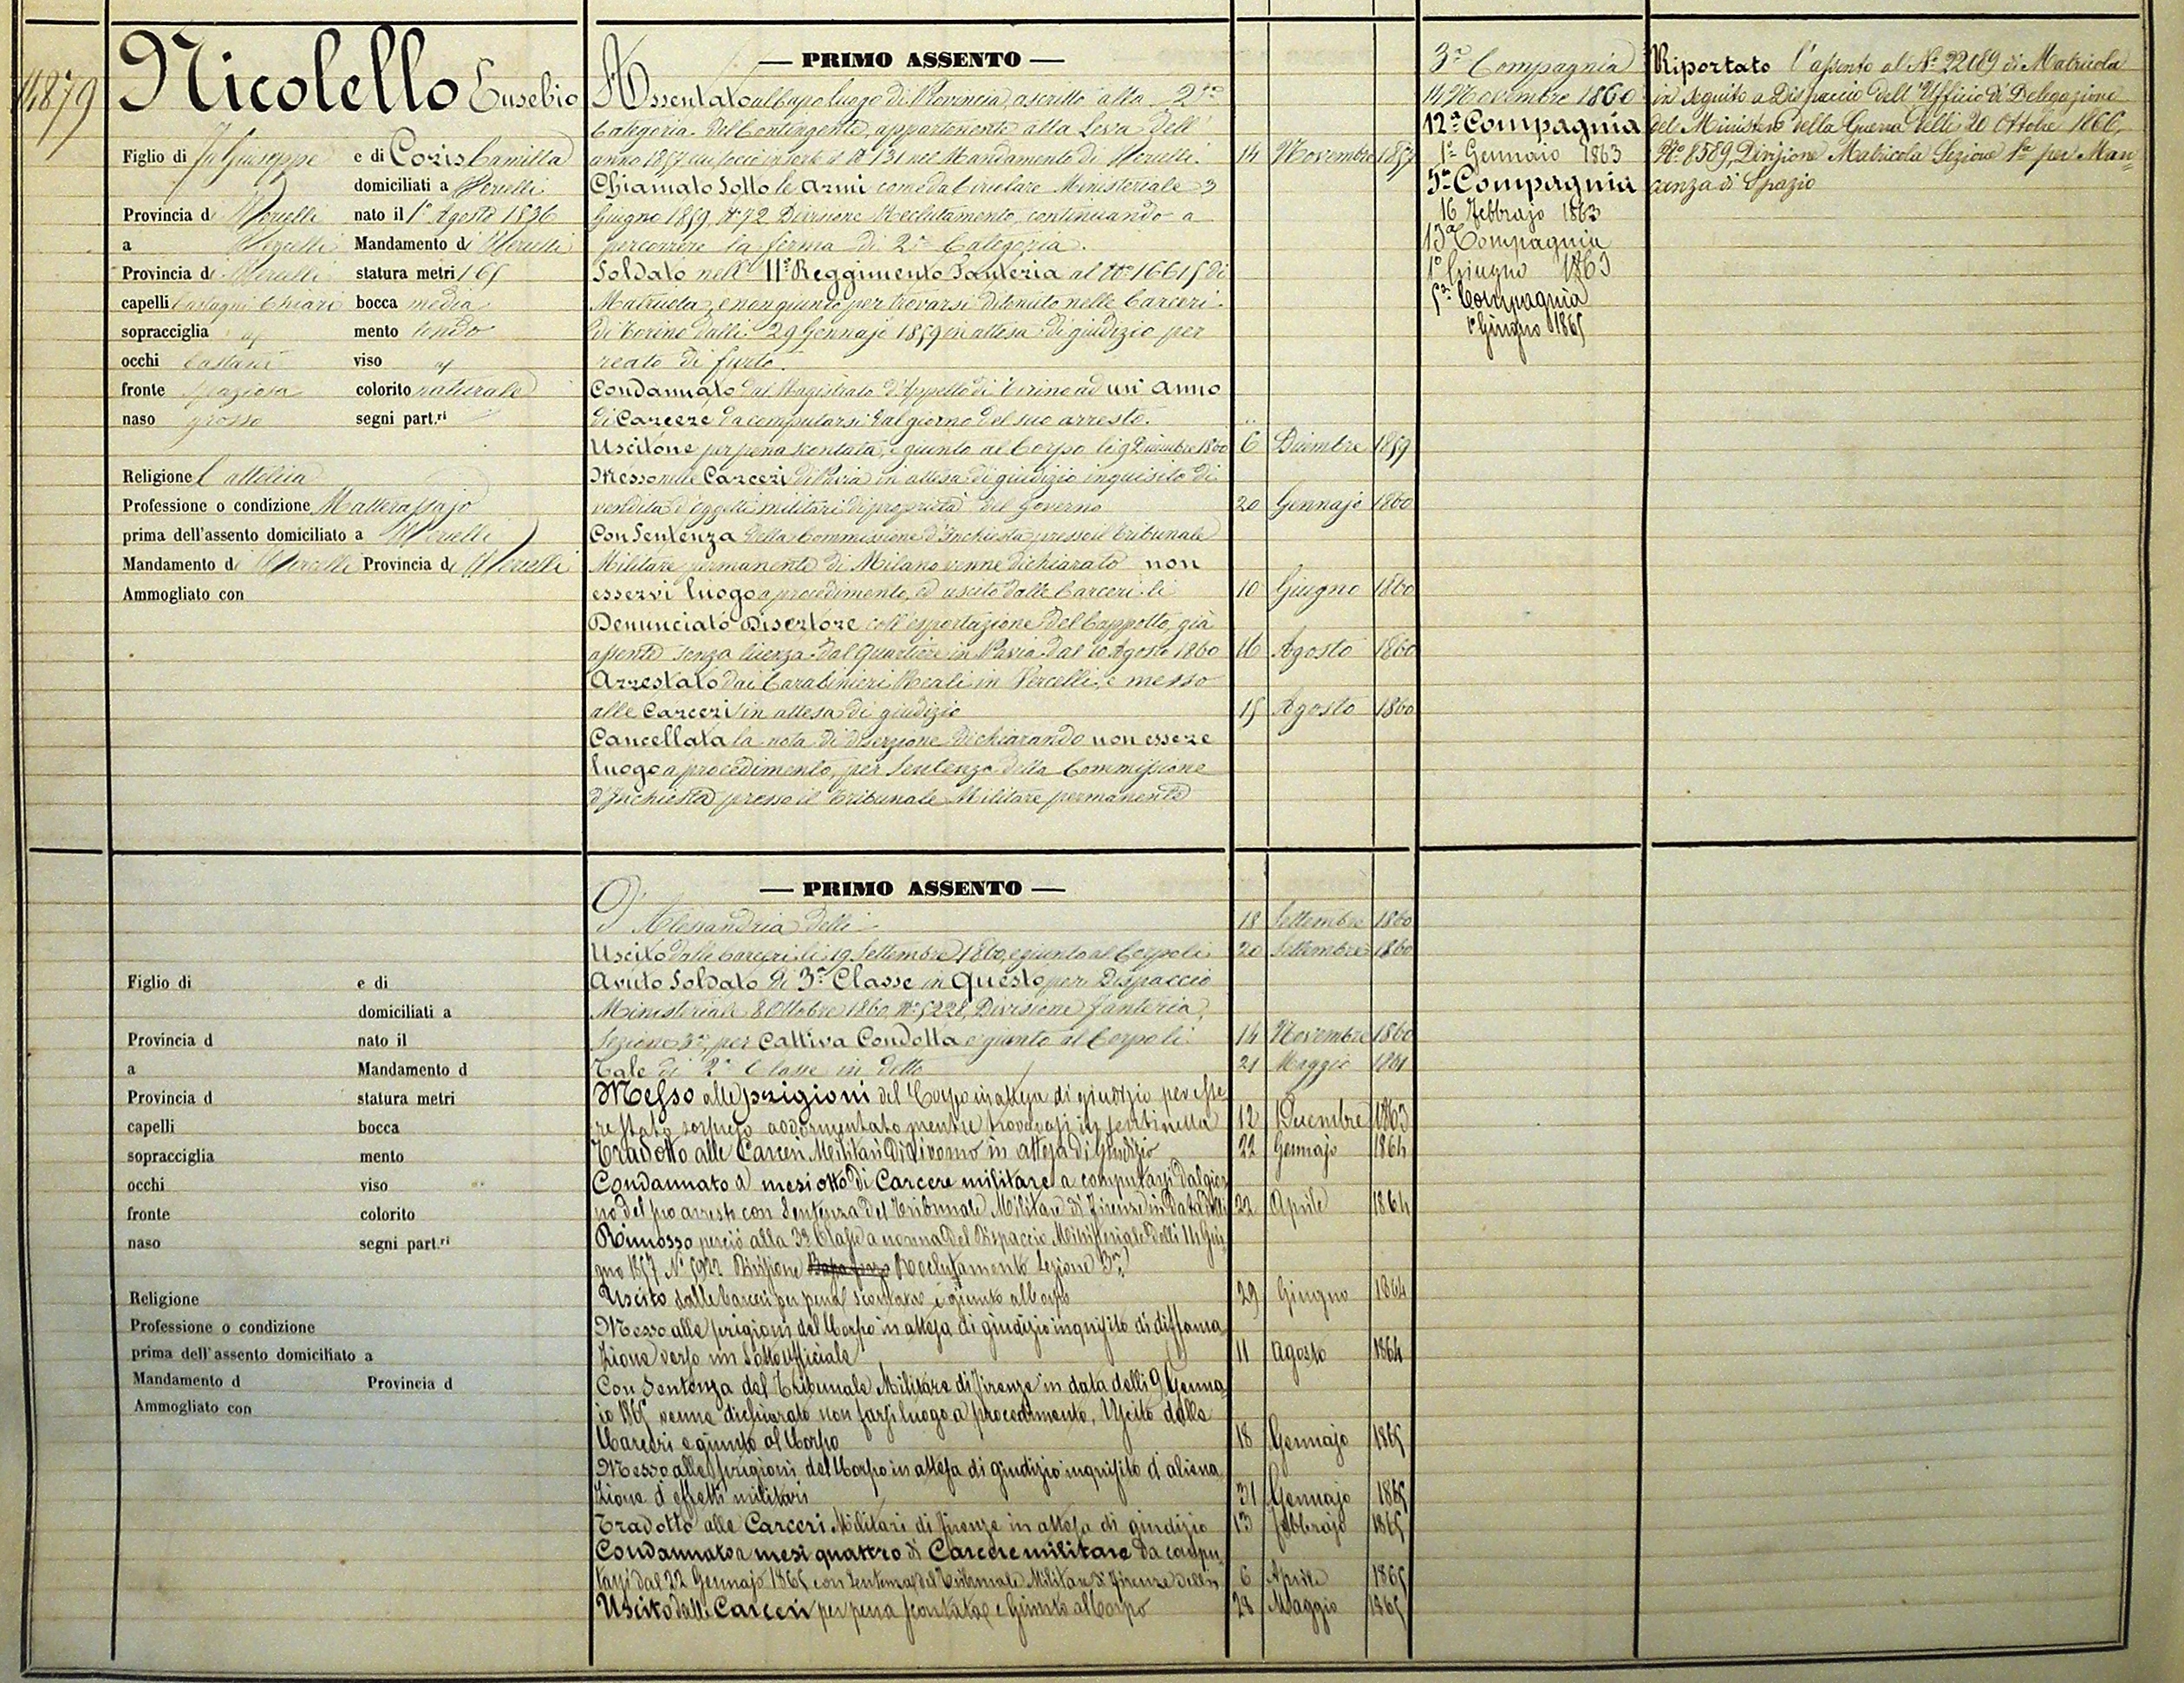 14879
Nicolello Eusebio
Figlio di fu Giuseppe e di Coris Camilla
domiciliati a Vercelli
Provincia di Vercelli nato il 1º Agosto 1836
a Vercelli Mandamento di Vercelli
Provincia di Vercelli statura metri 1 65
capelli Castagni Chiari bocca media
sopracciglia id mento tondo
occhi Castani viso id
fronte spaziosa colorito naturale
naso grosso segni part.ri
Religione Cattolica
Professione o condizione Matterassajo
prima dell'assento domiciliato a Vercelli
Mandamento di Vercelli Provincia di Vercelli
Ammogliato con
— PRIMO ASSENTO —
Assentato al Capo luogo di Provincia, ascritto alla 2da
Categoria del Contingente, appartenente alla Leva dell'
anno 1857 cui toccò in sorte il Nº 131 nel Mandamento di Vercelli. 14 Novembre 1857
Chiamato Sotto le Armi come da Circolare Ministeriale 3
Giugno 1859, Nº 72 Divisione Reclutamento, continuando a
percorrere la ferma di 2da Categoria.
Soldato nell' 11º Reggimento Fanteria al Nº 16615 di
Matricola, e non giunto per trovarsi ditenuto nelle Carceri
di Torino dalli 29 Gennajo 1859 in attesa di giudizio per
reato di furto.
Condannato dal Magistrato d'Appello di Torino ad un' Anno
di Carcere da computarsi dal giorno del suo arresto.
Uscitone per pena scontata, e giunto al Corpo li 9 Dicembre 1860 6 Dicembre 1859
Messo nelle Carceri di Pavia in attesa di giudizio inquisito di
vendita d'oggetti militari di proprietà del Governo 20 Gennajo 1860
Con Sentenza della Commissione d'Inchiesta presso il Tribunale
Militare permanente di Milano venne dichiarato non
esservi luogo a procedimento, ed uscito dalle Carceri li 10 Giugno 1860
Denunciato Disertore coll'esportazione del Cappotto, già
assente senza licenza dal Quartiere in Pavia dal 10 Agosto 1860 16 Agosto 1860
Arrestato dai Carabinieri Reali in Vercelli, e messo
alle Carceri in attesa di giudizio 15 Agosto 1860
Cancellata la nota di diserzione dichiarando non essere
luogo a procedimento, per Sentenza della Commissione
d'Inchiesta presso il Tribunale Militare permanente
3a Compagnia
14 Novembre 1860
12a Compagnia
1º Gennaio 1863
5a Compagnia
16 Febbrajo 1863
13a Compagnia
1º Giugno 1863
5a Compagnia
1º Giugno 1865
Riportato l'assento al Nº 22189 di Matricola
in seguito a Dispaccio dell'Uffizio di Delegazione
del Ministero della Guerra delli 20 Ottobre 1866,
Nº 8589, Divisione Matricola Sezione 1a per Man
canza di Spazio
— PRIMO ASSENTO —
d'Alessandria delli 18 Settembre 1860
Uscito dalle Carceri li 19 Settembre 1860, e giunto al Corpo li 20 Settembre 1860
Avuto Soldato di 3a Classe in Questo per Dispaccio
Ministeriale 8 Ottobre 1860, Nº 5228, Divisione Fanteria,
Sezione 3a, per Cattiva Condotta e giunto al Corpo li 14 Novembre 1860
Tale di 2a Classe in detto 21 Maggio 1861
Messo alle prigioni del Corpo in attesa di giudizio per esse
re stato sorpreso addormentato mentre trovavasi in sentinella 12 Dicembre 1863
Tradotto alle Carceri Militari di Livorno in attesa di Giudizio 22 Gennajo 1864
Condannato a mesi otto di Carcere militare a computarsi dal gior
no del suo arresto con Sentenza del Tribunale Militare di Firenze in data delli 22 Aprile 1864
Rimosso perciò alla 3a Classe a norma del Dispaccio Ministeriale delli 14 Giu
gno 1857 Nº 5922 Divisione Reclutamento Sezione 3a
Uscito dalle Carceri per pena scontata e giunto al Corpo 29 Giugno 1864
Messo alle prigioni del Corpo in attesa di giudizio inquisito di diffama
zione verso un Sottoufficiale 11 Agosto 1864
Con Sentenza del Tribunale Militare di Firenze in data delli 9 Genna
io 1865 venne dichiarato non farsi luogo a procedimento, Uscito dalle
Carceri e giunto al Corpo 18 Gennajo 1865
Messo alle prigioni del Corpo in attesa di giudizio inquisito d'aliena
zione d'effetti militari 31 Gennajo 1865
Tradotto alle Carceri Militari di Firenze in attesa di giudizio 13 Febbrajo 1865
Condannato a mesi quattro di Carcere militare da compu
tarsi dal 22 Gennajo 1865 con Sentenza del Tribunale Militare di Firenze delli 6 Aprile 1865
Uscito dalle Carceri per pena scontata e Giunto al Corpo 28 Maggio 1865
Figlio di e di
domiciliati a
Provincia d nato il
a Mandamento d
Provincia d statura metri
capelli bocca
sopracciglia mento
occhi viso
fronte colorito
naso segni part.ri
Religione
Professione o condizione
prima dell'assento domiciliato a
Mandamento d Provincia d
Ammogliato con